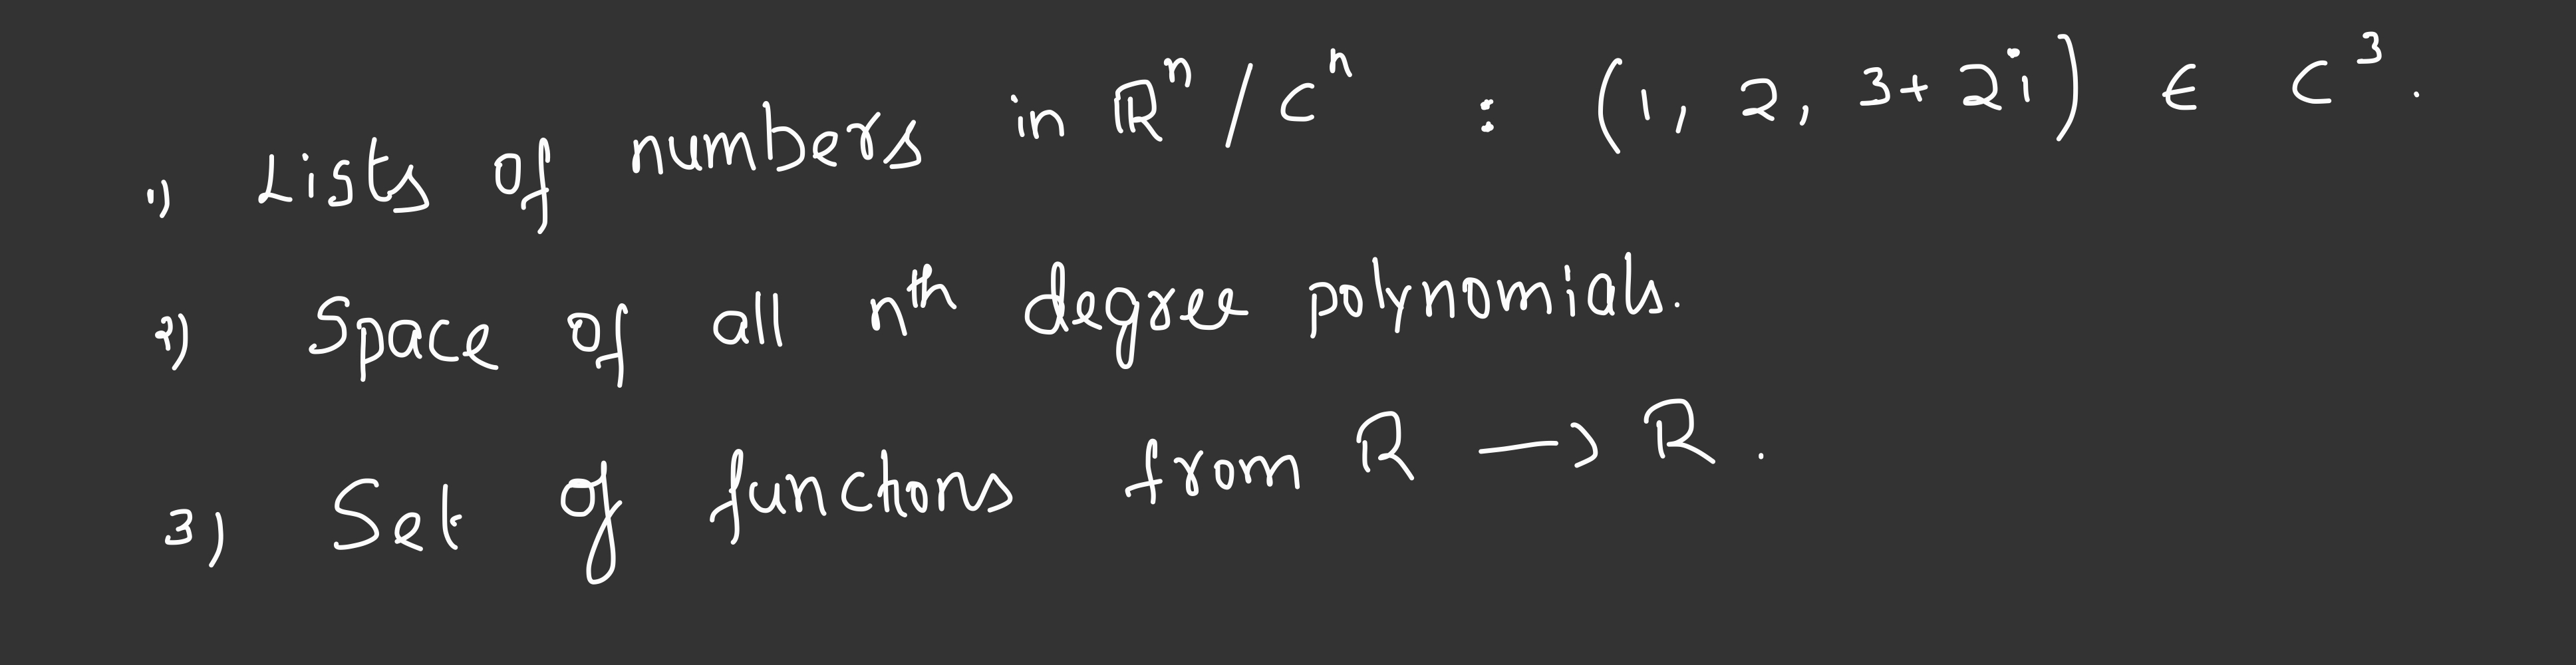 1) Lists of numbers in ℝⁿ/Cⁿ : (1, 2, 3+2i) ∈ C³.
2) Space of all nᵗʰ degree polynomials.
3) Set of functions from ℝ → ℝ.